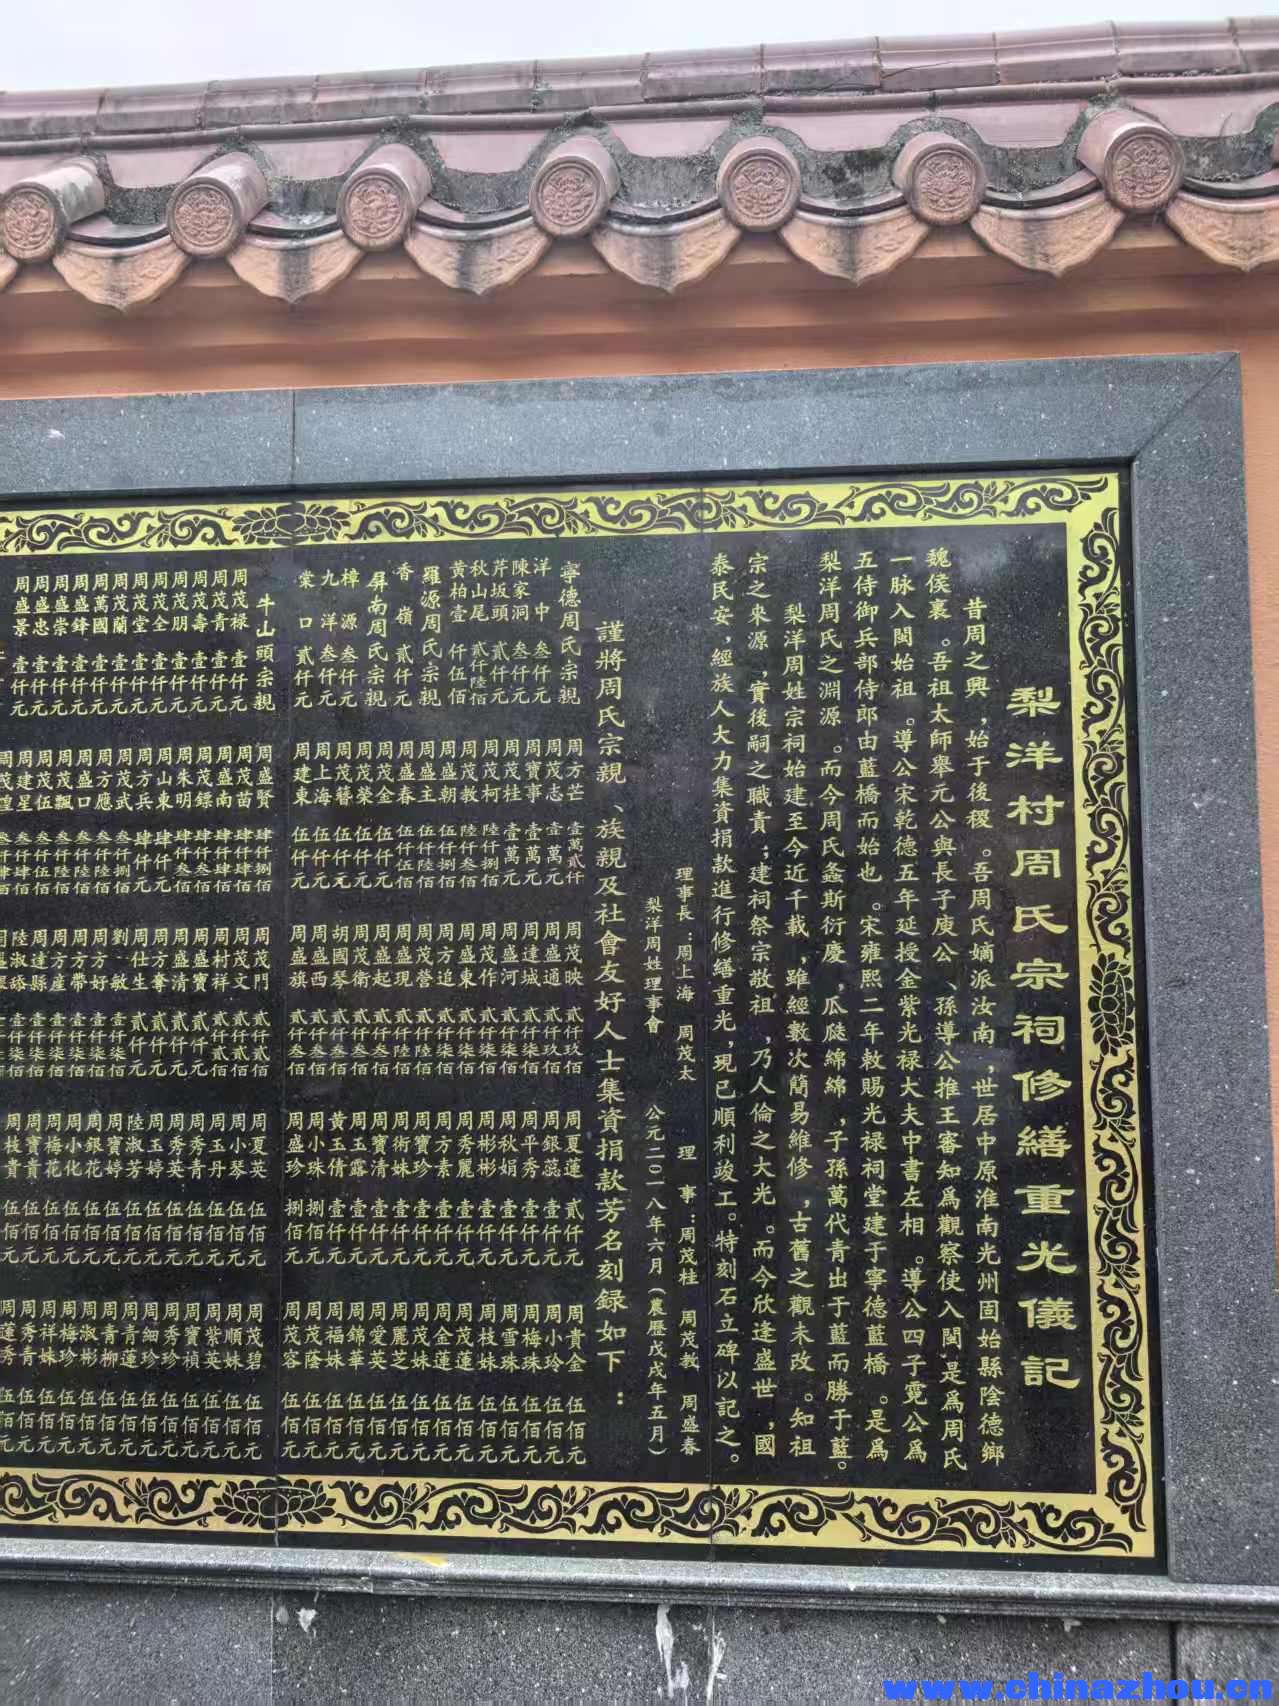 梨洋村周氏宗祠修繕重光儀記
昔周之興，始于後稷。吾周氏嫡派汝南，世居中原淮南光州固始縣陰德鄉
魏侯裏。吾祖太師舉元公與長子庾公、孫導公推王審知爲觀察使入閩是爲周氏
一脉入閩始祖。導公宋乾德五年延授金紫光禄大夫中書左相。導公四子霓公爲
五侍御兵部侍郎由藍橋而始也。宋雍熙二年敕賜光禄祠堂建于寧德藍橋。是爲
梨洋周氏之淵源。而今周氏螽斯衍慶，瓜瓞綿綿，子孫萬代青出于藍而勝于藍。
梨洋周姓宗祠始建至今近千載，雖經數次簡易維修，古舊之觀未改。知祖
宗之來源，實後嗣之職責；建祠祭宗敬祖，乃人倫之大光。而今欣逢盛世，國
泰民安，經族人大力集資捐款進行修繕重光，現已順利竣工。特刻石立碑以記之。
理事長：周上海 周茂太 理事：周茂桂 周茂教 周盛春
梨洋周姓理事會 公元二〇一八年六月（農歷戊戌年五月）
謹將周氏宗親、族親及社會友好人士集資捐款芳名刻録如下：
寧德周氏宗親 周方芒 壹萬貳仟 周茂映 貳仟玖佰 周夏蓮 貳仟元 周貴金 伍佰元
洋中 叁仟元 周茂志 壹萬元 周盛通 貳仟玖佰 周銀蕊 壹仟元 周小玲 伍佰元
陳家洞 叁仟元 周寶事 壹萬元 周達城 貳仟柒佰 周平秀 壹仟元 周梅珠 伍佰元
芹坂頭 貳仟元 周茂桂 壹萬元 周盛河 貳仟柒佰 周秋娟 壹仟元 周雪珠 伍佰元
秋山尾 貳仟陸佰 周茂柯 陸仟捌佰 周茂作 貳仟柒佰 周彬彬 壹仟元 周枝妹 伍佰元
黄柏壹 仟伍佰 周茂教 陸仟叁佰 周盛東 貳仟柒佰 周秀麗 壹仟元 周茂蓮 伍佰元
羅源周氏宗親 周盛朝 伍仟捌佰 周方追 貳仟柒佰 周方素 壹仟元 周金蓮 伍佰元
周盛主 伍仟陸佰 周茂營 貳仟陸佰 周寶珍 壹仟元 周茂妹 伍佰元
香嶺 貳仟元 周盛春 伍仟伍佰 周盛現 貳仟叁佰 周術妹 壹仟元 周麗芝 伍佰元
屏南周氏宗親 周茂金 伍仟元 周盛起 貳仟叁佰 周寶清 壹仟元 周愛英 伍佰元
樟源 叁仟元 周茂榮 伍仟元 周茂衛 貳仟叁佰 周玉露 壹仟元 周錦華 伍佰元
九洋 叁仟元 周茂簪 伍仟元 胡國琴 貳仟叁佰 黄玉倩 壹仟元 周福妹 伍佰元
周上海 伍仟元 周盛西 貳仟叁佰 周小珠 捌佰元 周茂蔭 伍佰元
棠口 貳仟元 周建東 伍仟元 周盛旗 貳仟叁佰 周盛珍 捌佰元 周茂容 伍佰元
牛山頭宗親 周盛賢 肆仟捌佰 周茂門 貳仟貳佰 周夏英 伍佰元 周茂碧 伍佰元
周茂禄 壹仟元 周茂苗 肆仟肆佰 周茂文 貳仟貳佰 周小琴 伍佰元 周順妹 伍佰元
周茂青 壹仟元 周盛南 肆仟肆佰 周村祥 貳仟貳佰 周玉丹 伍佰元 周紫英 伍佰元
周茂壽 壹仟元 周茂鏢 肆仟叁佰 周盛寶 貳仟元 周秀青 伍佰元 周寶禎 伍佰元
周茂朋 壹仟元 周朱明 肆仟叁佰 周盛清 貳仟元 周秀英 伍佰元 周秀珍 伍佰元
周茂全 壹仟元 周山東 肆仟元 周方滿 貳仟元 周玉婷 伍佰元 周細珍 伍佰元
周茂堂 壹仟元 周方兵 肆仟元 周仕生 貳仟元 陸淑芳 伍佰元 周青蓮 伍佰元
周茂蘭 壹仟元 周茂武 叁仟捌佰 劉敏 壹仟柒佰 周寶婷 伍佰元 周青柳 伍佰元
周萬國 壹仟元 周方應 叁仟陸佰 周方好 壹仟柒佰 周銀花 伍佰元 周淑彬 伍佰元
周盛鋒 壹仟元 周盛口 叁仟陸佰 周方帶 壹仟柒佰 周小化 伍佰元 周梅珍 伍佰元
周盛崇 壹仟元 周茂飄 叁仟陸佰 周方産 壹仟柒佰 周梅花 伍佰元 周祥妹 伍佰元
周盛忠 壹仟元 周茂伍 叁仟伍佰 周達縣 壹仟柒佰 周寶花 伍佰元 周秀青 伍佰元
周盛景 壹仟元 周建星 叁仟肆佰 陸淑舔 壹仟柒佰 周枝貴 伍佰元 周蓮秀 伍佰元
www.chinazhou.cn